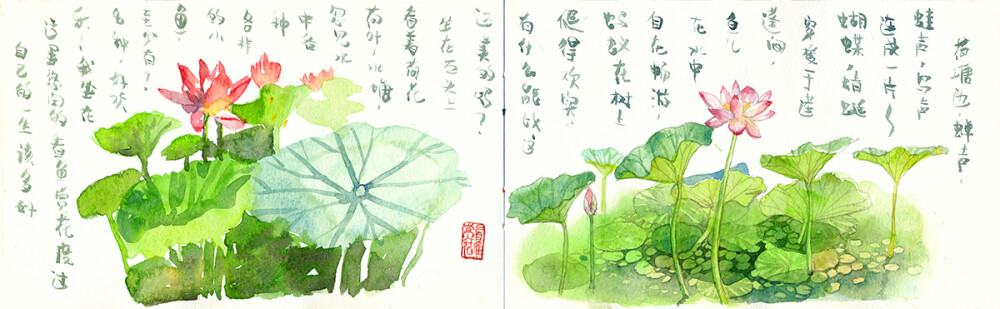 荷塘边,蝉声、
蛙声、鸟声
连成一片~
蝴蝶、蜻蜓
穿梭于莲
蓬间,
鱼儿
在水中
自在畅游,
蚂蚁在树上
爬得欢实。
有什么能比这
还美的呢?
坐在石头上
看着荷花
荷叶,水塘
水
中各
种
各样
的小
鱼,
至少有
种,好欢
乐~我坐在
这里悠闲的看鱼赏花度过
自己的一生该多好